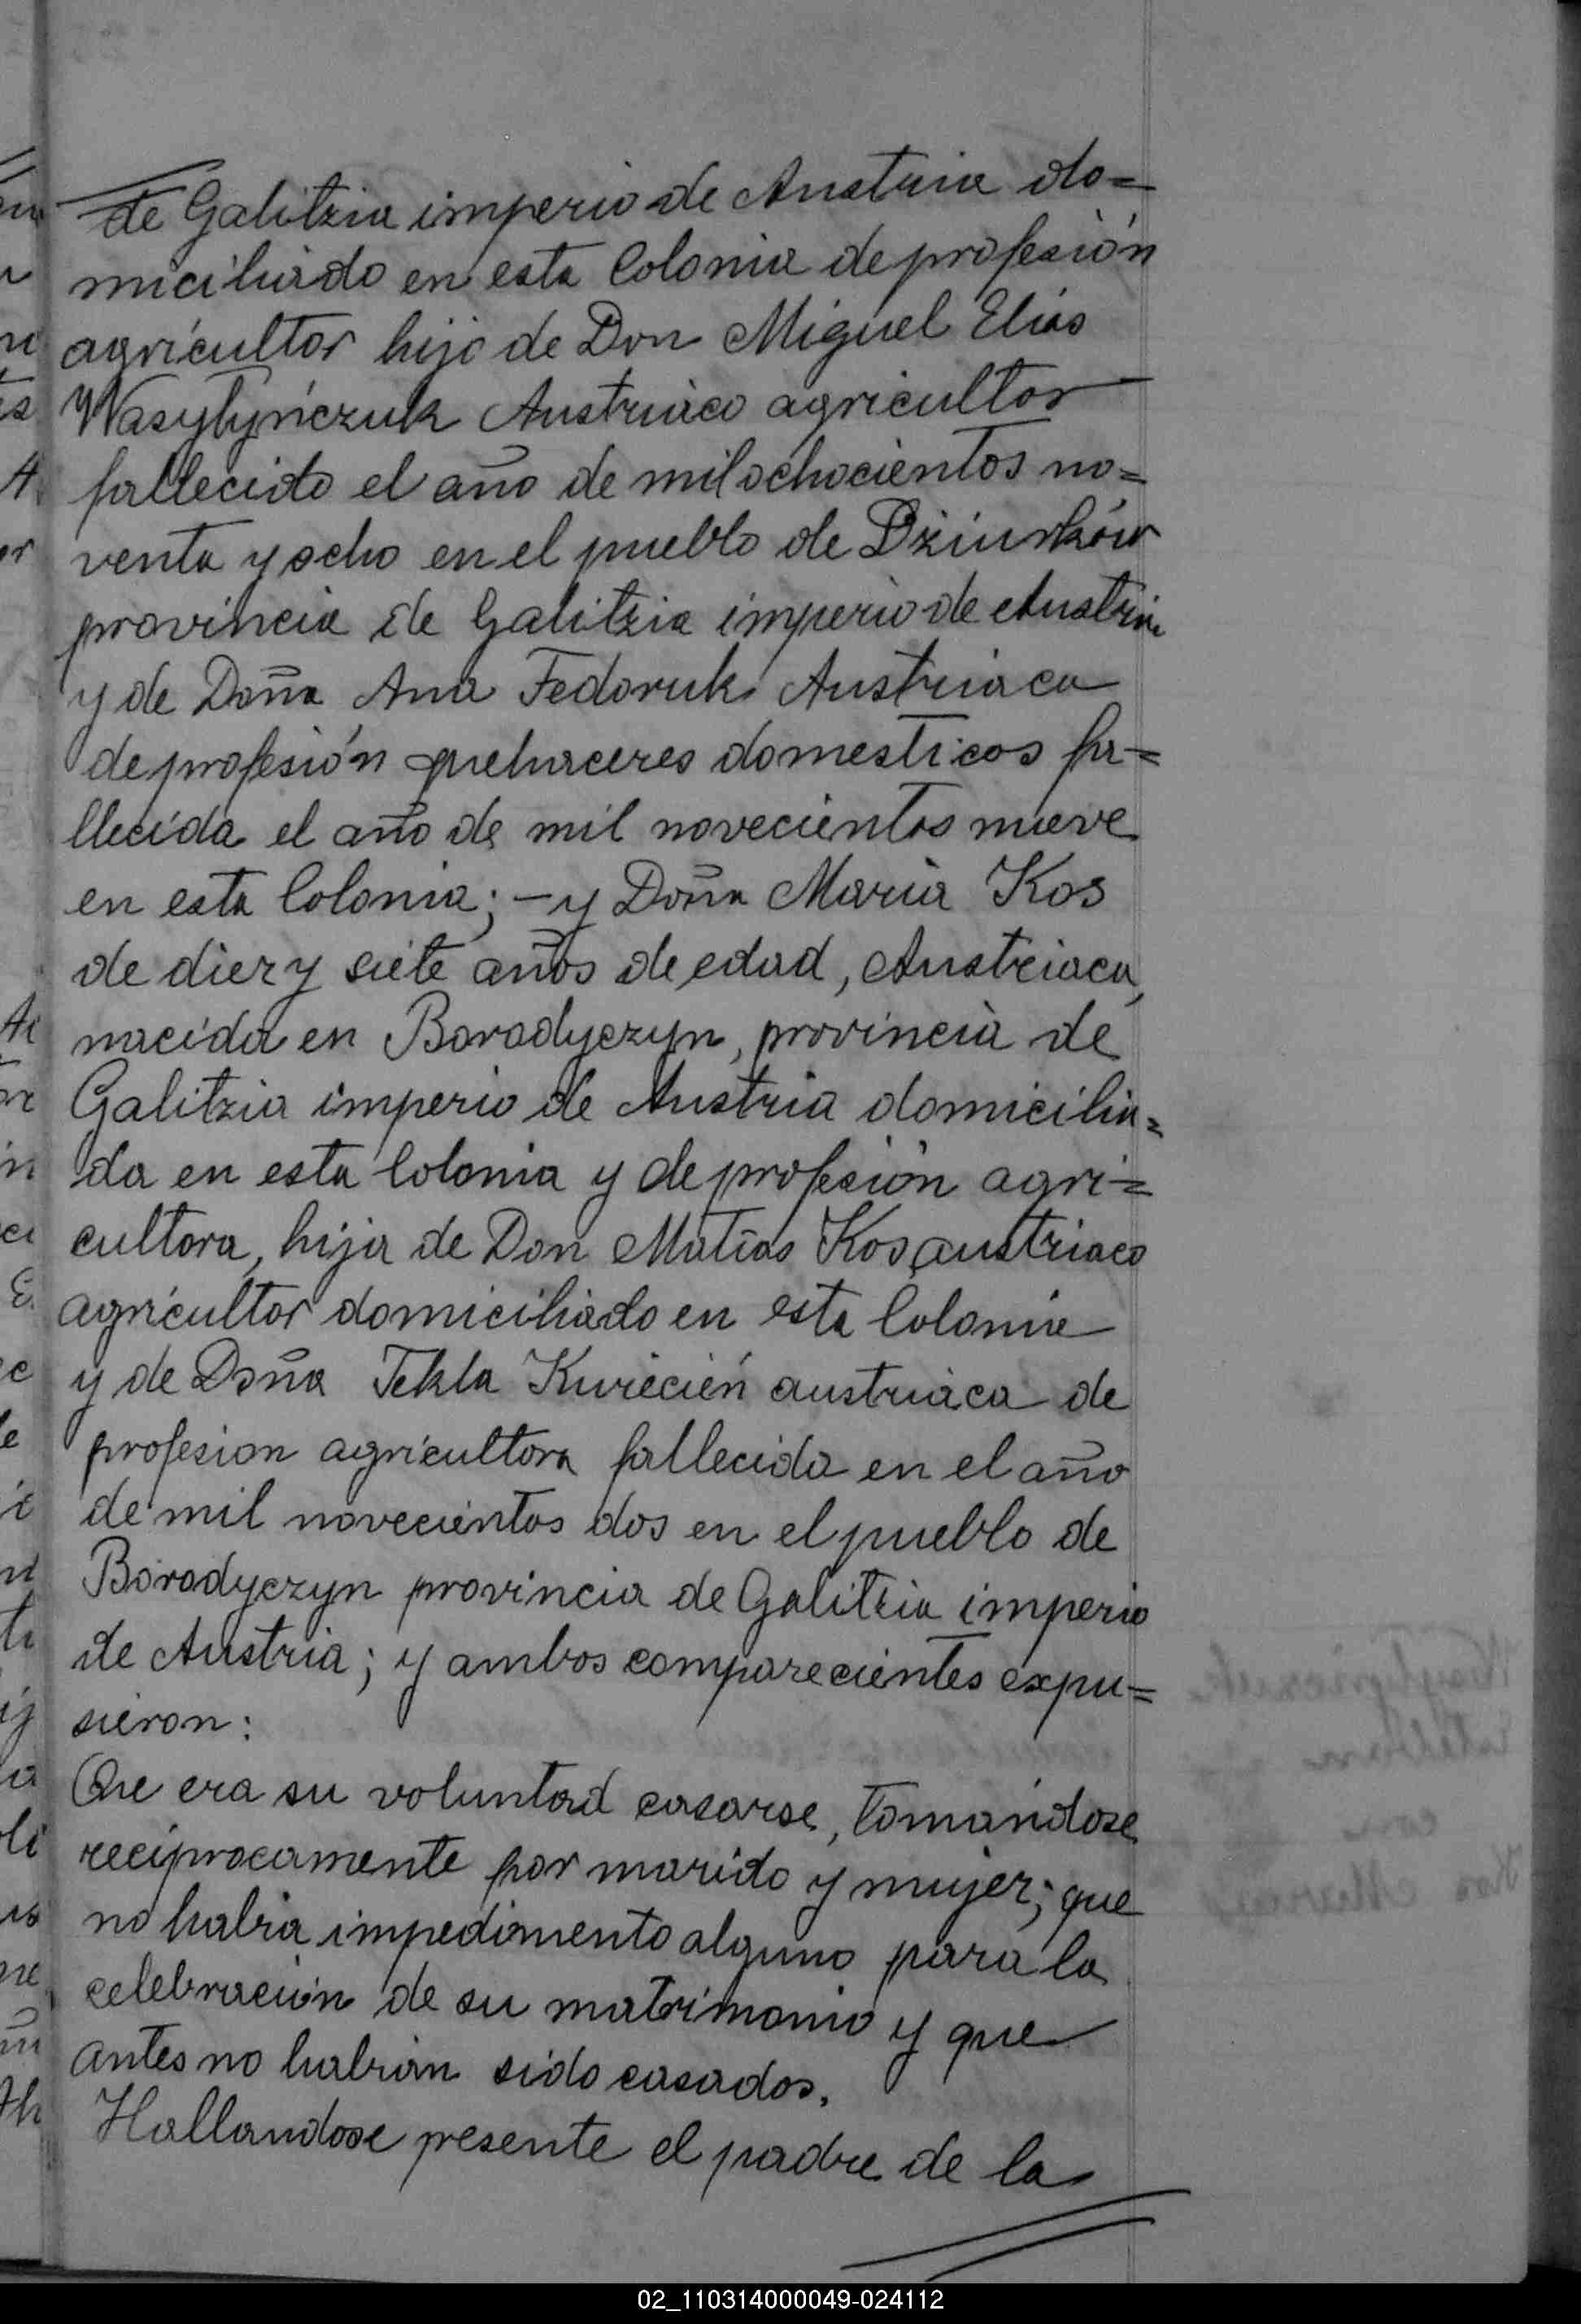 de Galitzia imperio de Austria do=
miciliado en esta Colonia de profesión
agricultor hijo de Don Miguel Elias
Wasylyńczuk Austriaco agricultor
fallecido el año de mil ochocientos no=
venta y ocho en el pueblo de Dziurków
provincia de Galitzia imperio de Austria
y de Doña Ana Fedoruk Austriaca
de profesión quehaceres domesticos fa=
llecida el año de mil novecientos nueve
en esta Colonia; – y Doña Maria Kos
de diez y siete años de edad, Austriaca,
nacida en Borodyczyn, provincia de
Galitzia imperio de Austria domicilia=
da en esta Colonia y de profesion agri=
cultora, hija de Don Matías Kos, austriaco
agricultor domiciliado en esta Colonia
y de Doña Tekla Kwiecień austriaca de
profesion agricultora fallecida en el año
de mil novecientos dos en el pueblo de
Borodyczyn provincia de Galitzia imperio
de Austria; y ambos comparecientes expu=
sieron:
Que era su voluntad casarse, tomándose
reciprocamente por marido y mujer; que
no habia impedimento alguno para la
celebracion de su matrimonio y que
antes no habian sido casados.
Hallandose presente el padre de la
02_110314000049-024112